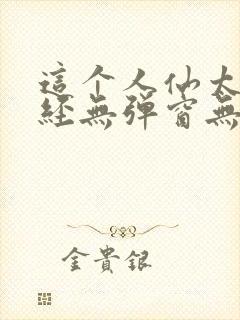 這个人仙太
經無彈窗無
金貴銀